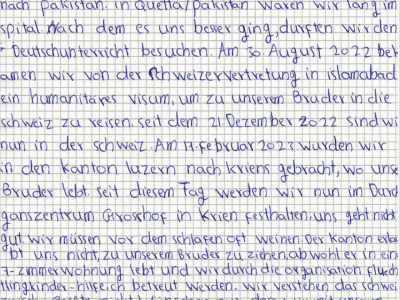 nach Pakistan. in Quetta/Pakistan waren wir lang im
spital. Nach dem es uns besser ging, durften wir den
Deutschunterricht besuchen. Am 30 August 2022 bek
amen wir von der Schweizervertretung in islamabad
ein humanitäres visum, um zu unserem Bruder in die
schweiz zu reisen. seit dem 21. Dezember 2022 sind wi
nun in der schweiz. Am 14. februar 2023 wurden wir
in den kanton luzern nach kriens gebracht, wo unse
Bruder lebt. seit diesem Tag werden wir nun im Durch
ganszentrum Grosshof in Krien festhalten. uns geht nicht
gut. wir müssen vor dem schlafen oft weinen. Der kanton erla
bt uns nicht, zu unserem Bruder zu ziehen, abwohl er in ein
7-zimmerwohnung lebt und wir durch die organisation fluech
tlingkinder-hilfe.ch betreut werden. wir verstehen das schwei